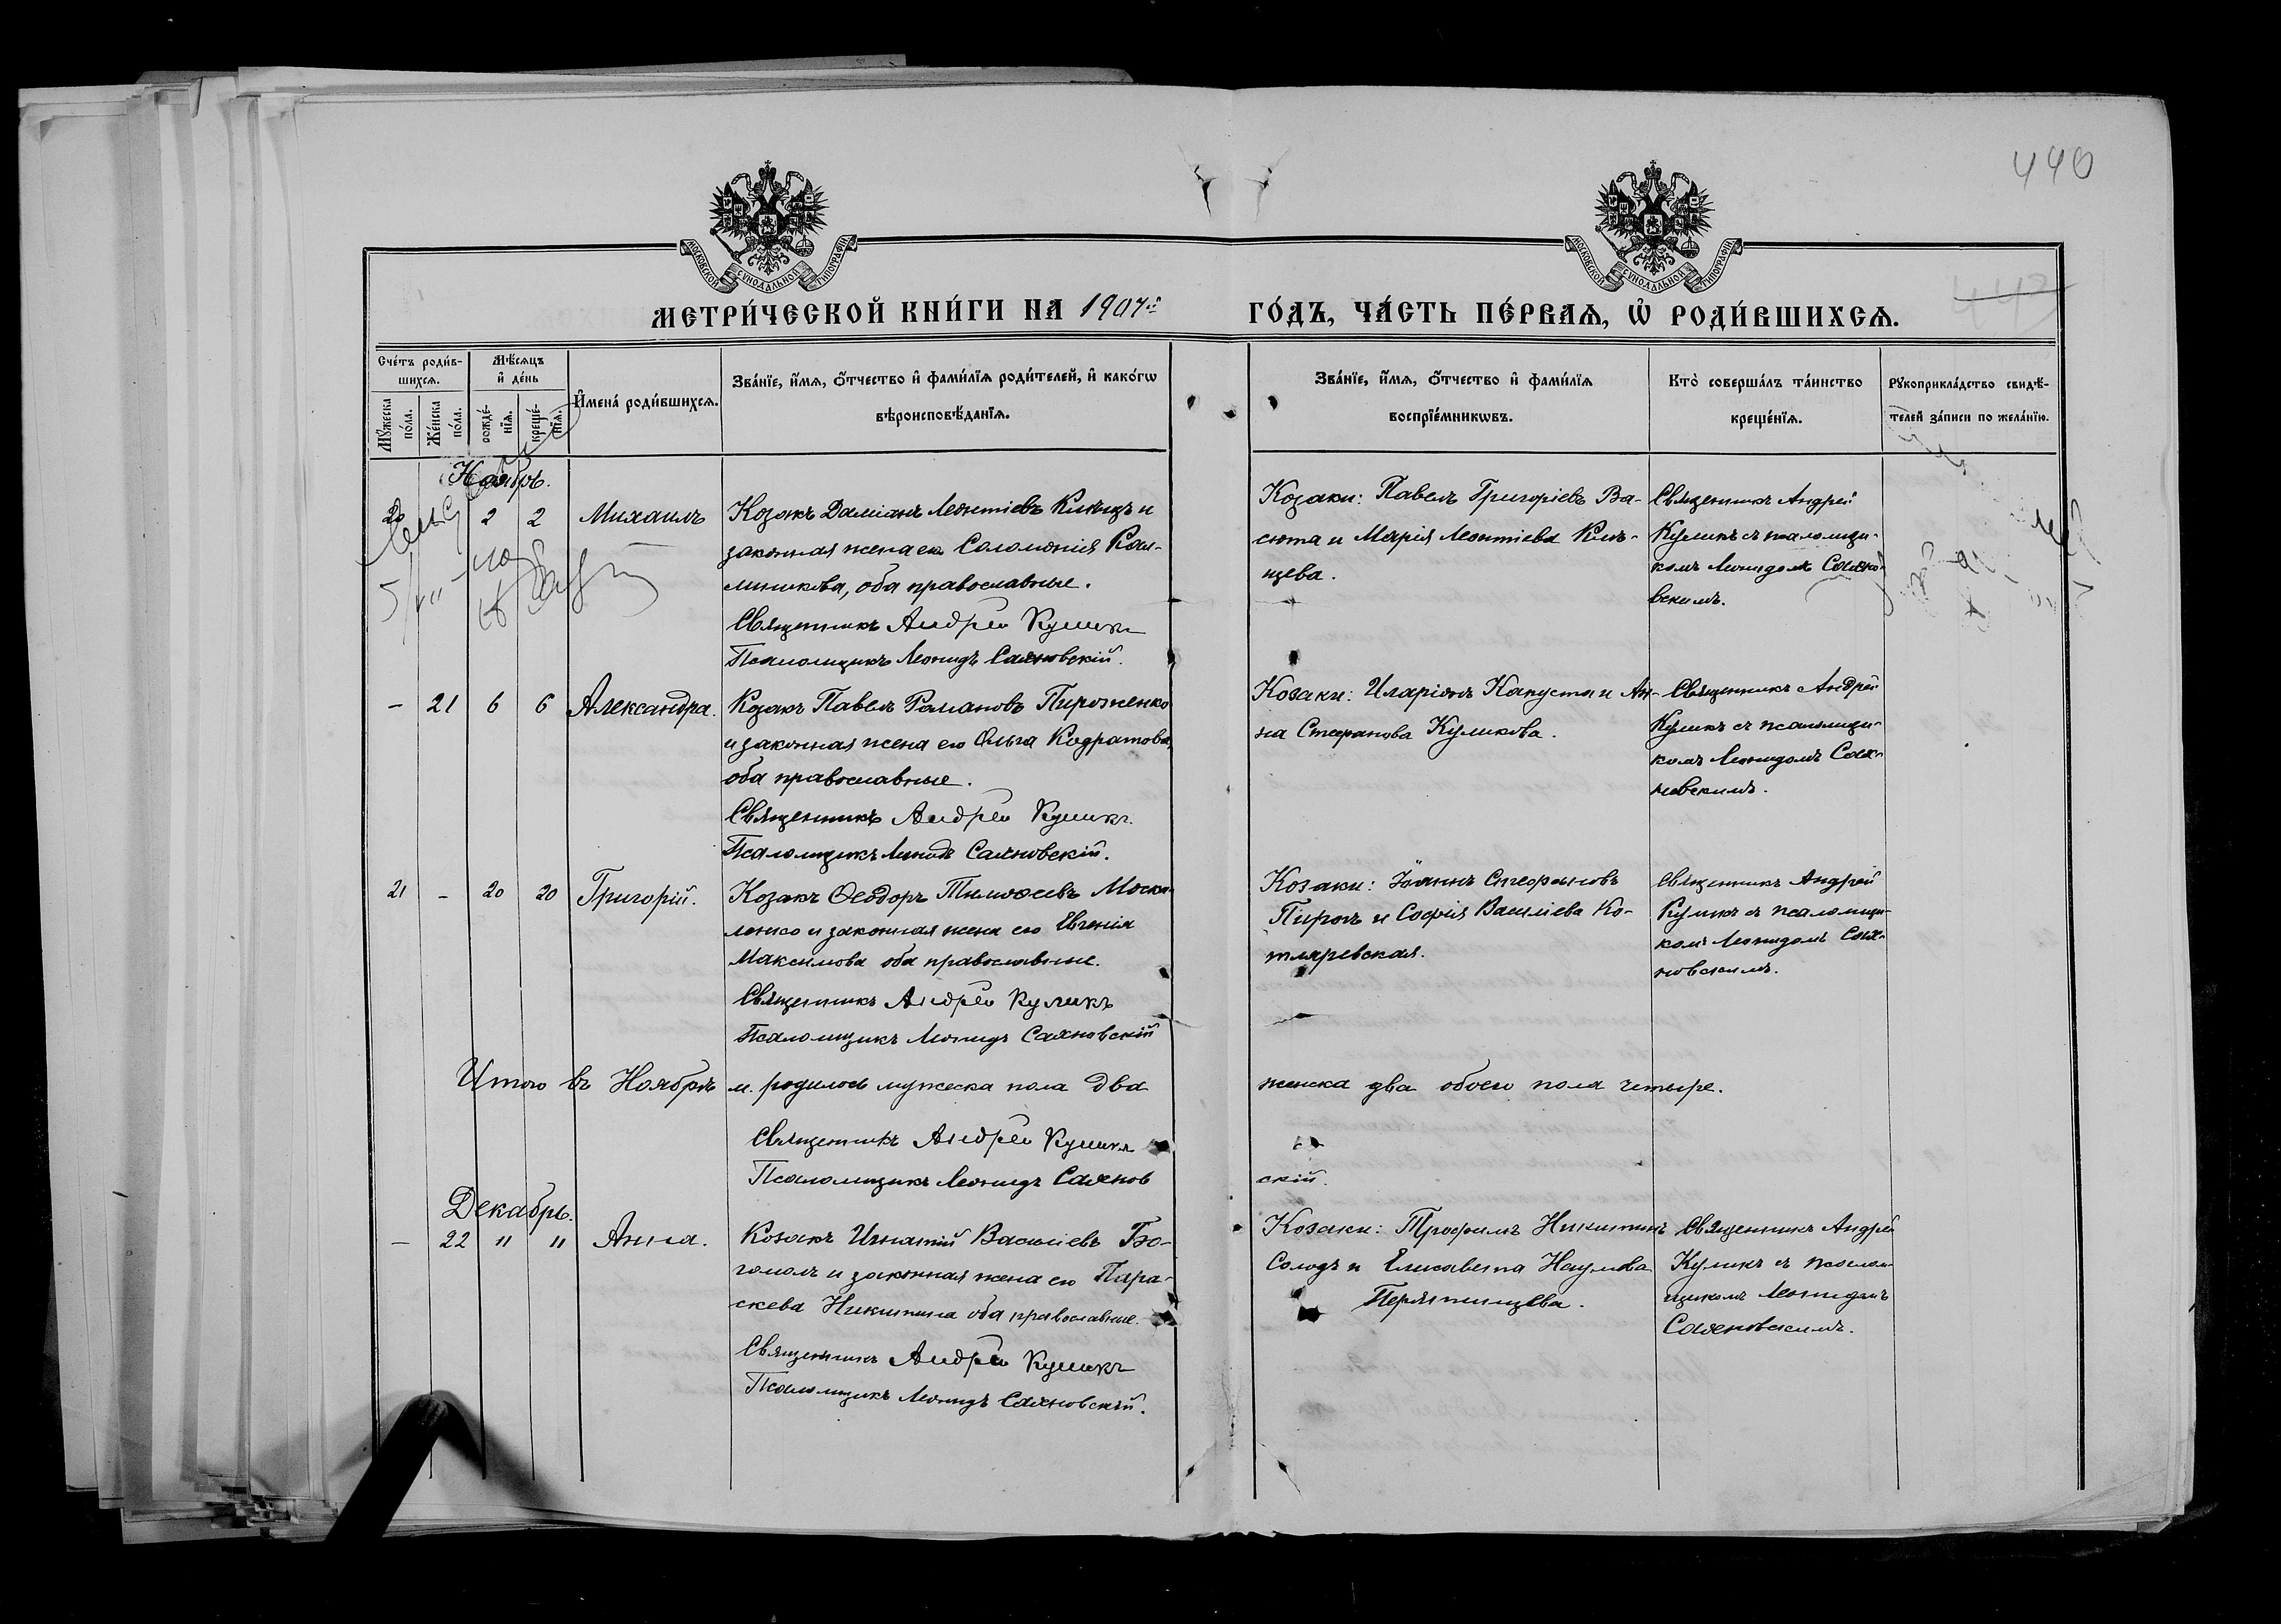 440
МОСКОВСКОЙ СѴНОДАЛЬНОЙ ТИПОГРАФІИ
МОСКОВСКОЙ СѴНОДАЛЬНОЙ ТИПОГРАФІИ
МЕТРИ́ЧЕСКОЙ КНИ́ГИ НА 1907й ГО́ДЪ, ЧА́СТЬ ПЕ́РВАѦ, Ѡ РОДИ́ВШИХСѦ.
Сче́тъ роди́в-
шихсѧ.
Мѣ́сѧцъ
и де́нь
Мꙋ́жеска
по́ла.
Же́нска
по́ла.
рожде́-
нїѧ.
креще́-
нїѧ.
Имена́ роди́вшихсѧ.
Зва́нїе, и́мѧ, ѻ́тчество и фами́лїѧ роди́телей, и како́гѡ
вѣроисповѣ́данїѧ.
Зва́нїе, и́мѧ, ѻ́тчество и фами́лїѧ
воспрїе́мникѡвъ.
Кто̀ соверша́лъ та́инство
креще́нїѧ.
Рꙋкоприкла́дство свидѣ́-
телей за́писи по жела́нїю.
Ноябрь.
20 2 2 Михаилъ
Козакъ Даміанъ Леонтіевъ
законная жена его Соломонія
оба православные.
Священникъ Андрей Куликъ
Псаломщикъ Леонидъ Саяновскій.
Козаки: Павелъ Григоріевъ Ва-
сюта и Марія Леонтіева
щева.
Священникъ Андрей
Куликъ съ псаломщи-
комъ Леонидомъ Саяно-
вскимъ.
– 21 6 6 Александра.
Козакъ Павелъ Романовъ Пироженко
и законная жена его Ольга Кодратова,
оба православные.
Священникъ Андрей Куликъ.
Псаломщикъ Леонидъ Саяновскій.
Козаки: Иларіонъ Капуста и Ан-
на Стефанова Куликова.
Священникъ Андрей
Куликъ съ псаломщи-
комъ Леонидомъ Сая-
новскимъ.
21 – 20 20 Григорій.
Козакъ Ѳеодоръ Тимоѳеевъ Моска-
ленко и законная жена его Евгенія
Максимова оба православные.
Священникъ Андрей Куликъ
Псаломщикъ Леонидъ Саяновскій
Козаки: Іоаннъ Стефановъ
Пирогъ и Софія Василіева Ко-
тляревская.
Священникъ Андрей
Куликъ съ псаломщи-
комъ Леонидомъ Сая-
новскимъ.
Итого въ Ноябрѣ м. родилось мужеска пола два женска два обоего пола четыре.
Священникъ Андрей Куликъ
Псаломщикъ Леонидъ Саянов
скій.
Декабрь.
– 22 11 11 Анна.
Козакъ Игнатій Василіевъ Бо-
гомолъ и законная жена его Пара-
скева Никитина оба православные.
Священникъ Андрей Куликъ
Псаломщикъ Леонидъ Саяновскій.
Козаки: Трофимъ Никитинъ
Солодъ и Елисавета Наумова
Перятинцева.
Священникъ Андрей
Куликъ съ псалом-
щикомъ Леонидомъ
Саяновскимъ.